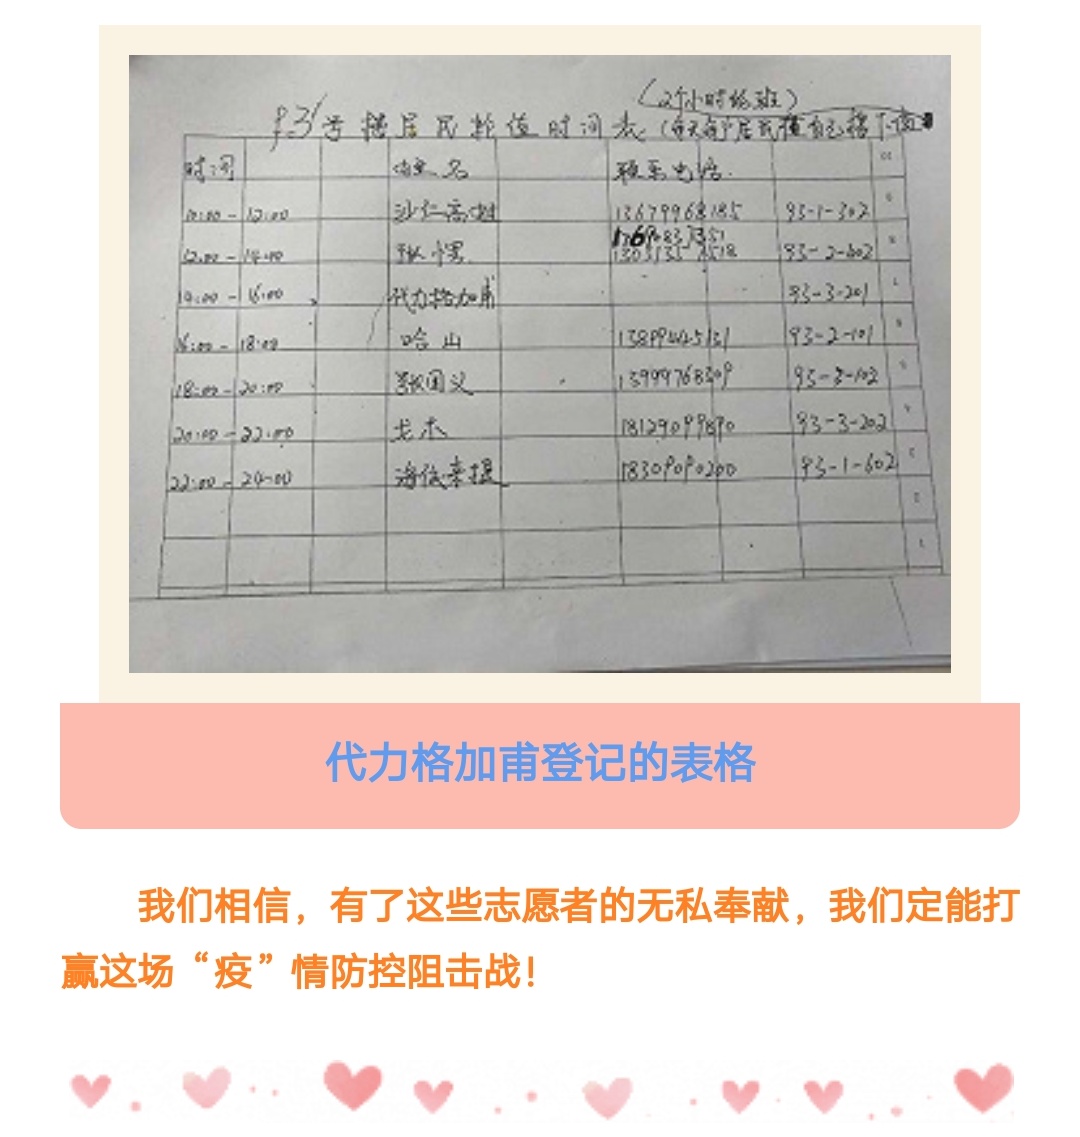 (2个小时轮班)
93号楼居民轮值时间表
时间 姓名 联系电话
10:00-12:00 沙仁高娃 13679968185 93-1-302
12:00-14:00 93-2-602
14:00-16:00 代力格加甫 93-3-201
16:00-18:00 哈山 93-2-101
18:00-20:00 张国义 13999768309 93-3-102
20:00-22:00 戈木 18129099890 93-3-202
22:00-24:00 18309090200 93-1-602
代力格加甫登记的表格
我们相信，有了这些志愿者的无私奉献，我们定能打
赢这场“疫”情防控阻击战！